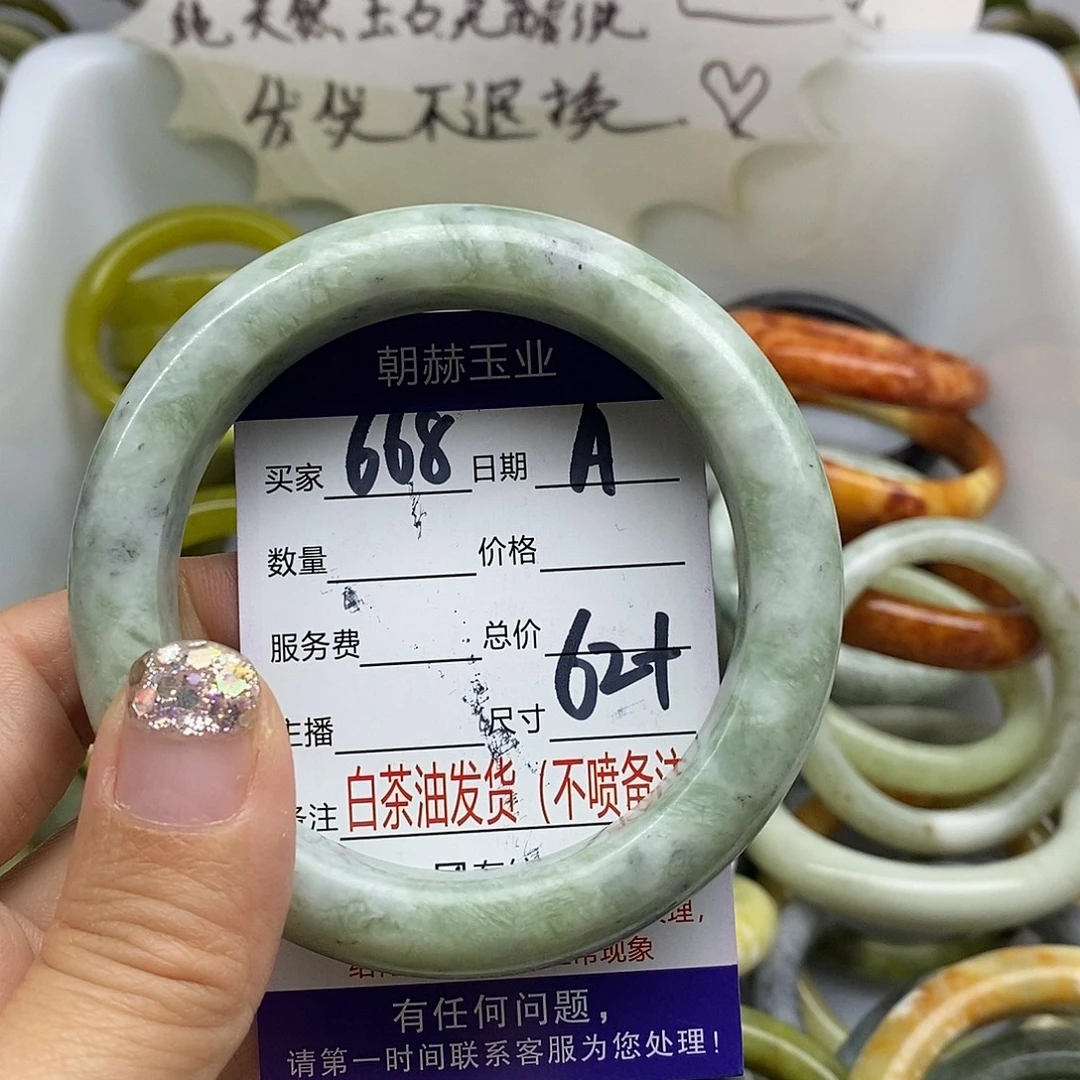 纯天然玉石无酸洗
售出不退换
朝赫玉业
买家 668 日期 A
数量 价格
服务费 总价
62+
主播 尺寸
备注 白茶油发货（不喷备注
理，
常现象
有任何问题，
请第一时间联系客服为您处理！